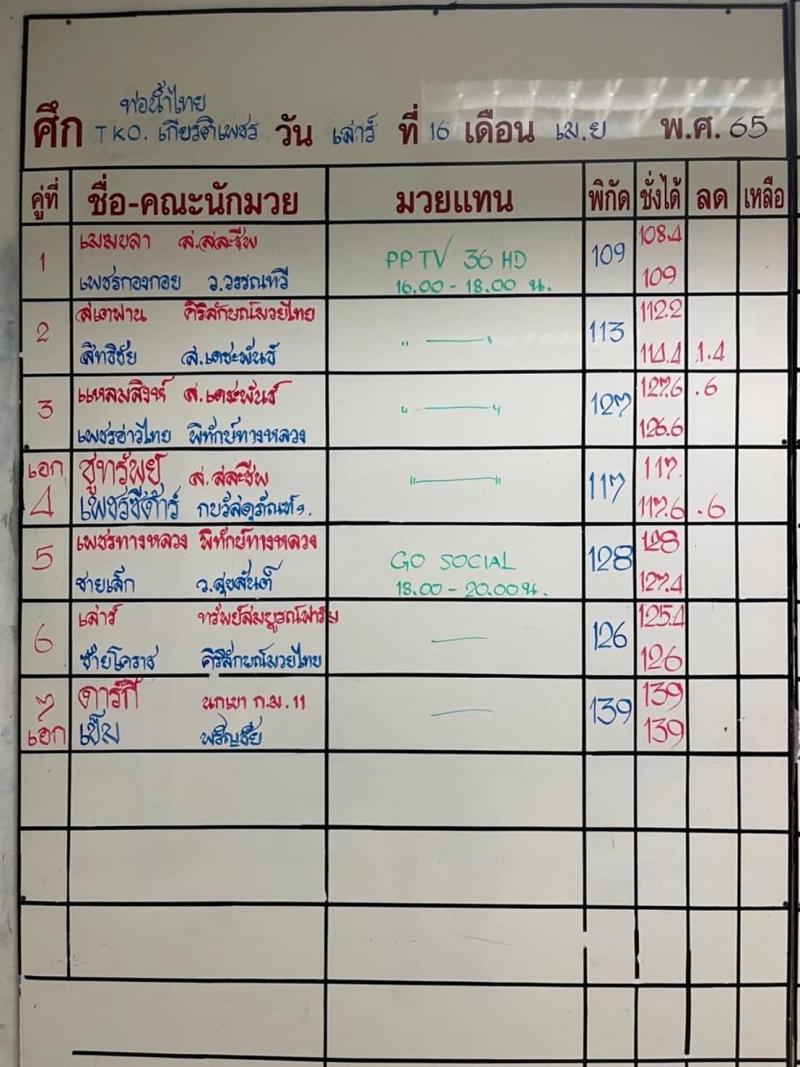 ท่อน้ำไทย
ศึก TKO. เกียรติเพชร วัน เสาร์ ที่ 16 เดือน เม.ย พ.ศ. 65
คู่ที่ ชื่อ-คณะนักมวย มวยแทน พิกัด ชั่งได้ ลด เหลือ
1 เมฆขลา ส.สละชีพ PPTV 36 HD 109 108.4
เพชรกองกอย ว.วรรณทวี 16.00-18.00 น. 109
2 สเตฟาน ศิริลักษณ์มวยไทย " — " 113 112.2
สิทธิชัย ส.เดชะพันธ์ 114.4 1.4
3 แหลมสิงห์ ส.เดชะพันธ์ " — " 127 127.6 .6
เพชรอ่าวไทย พิทักษ์ทางหลวง 126.6
เอก ชูทรัพย์ ส.สละชีพ " — " 117 117.
4 เพชรซีด้าร์ กบวัสดุภัณฑ์ฯ. 117.6 .6
5 เพชรทางหลวง พิทักษ์ทางหลวง GO SOCIAL 128 128
ชายเล็ก ว.สุขสันต์ 18.00-20.00 น. 127.4
6 เสาร์ ทรัพย์สมบูรณ์ฟาร์ม — 126 125.4
ชัยโคราช ศิริลักษณ์มวยไทย 126
7 ดาร์กี้ นกเขา ก.ม.11 — 139 139
เอก เข้ม พรัญชัย 139